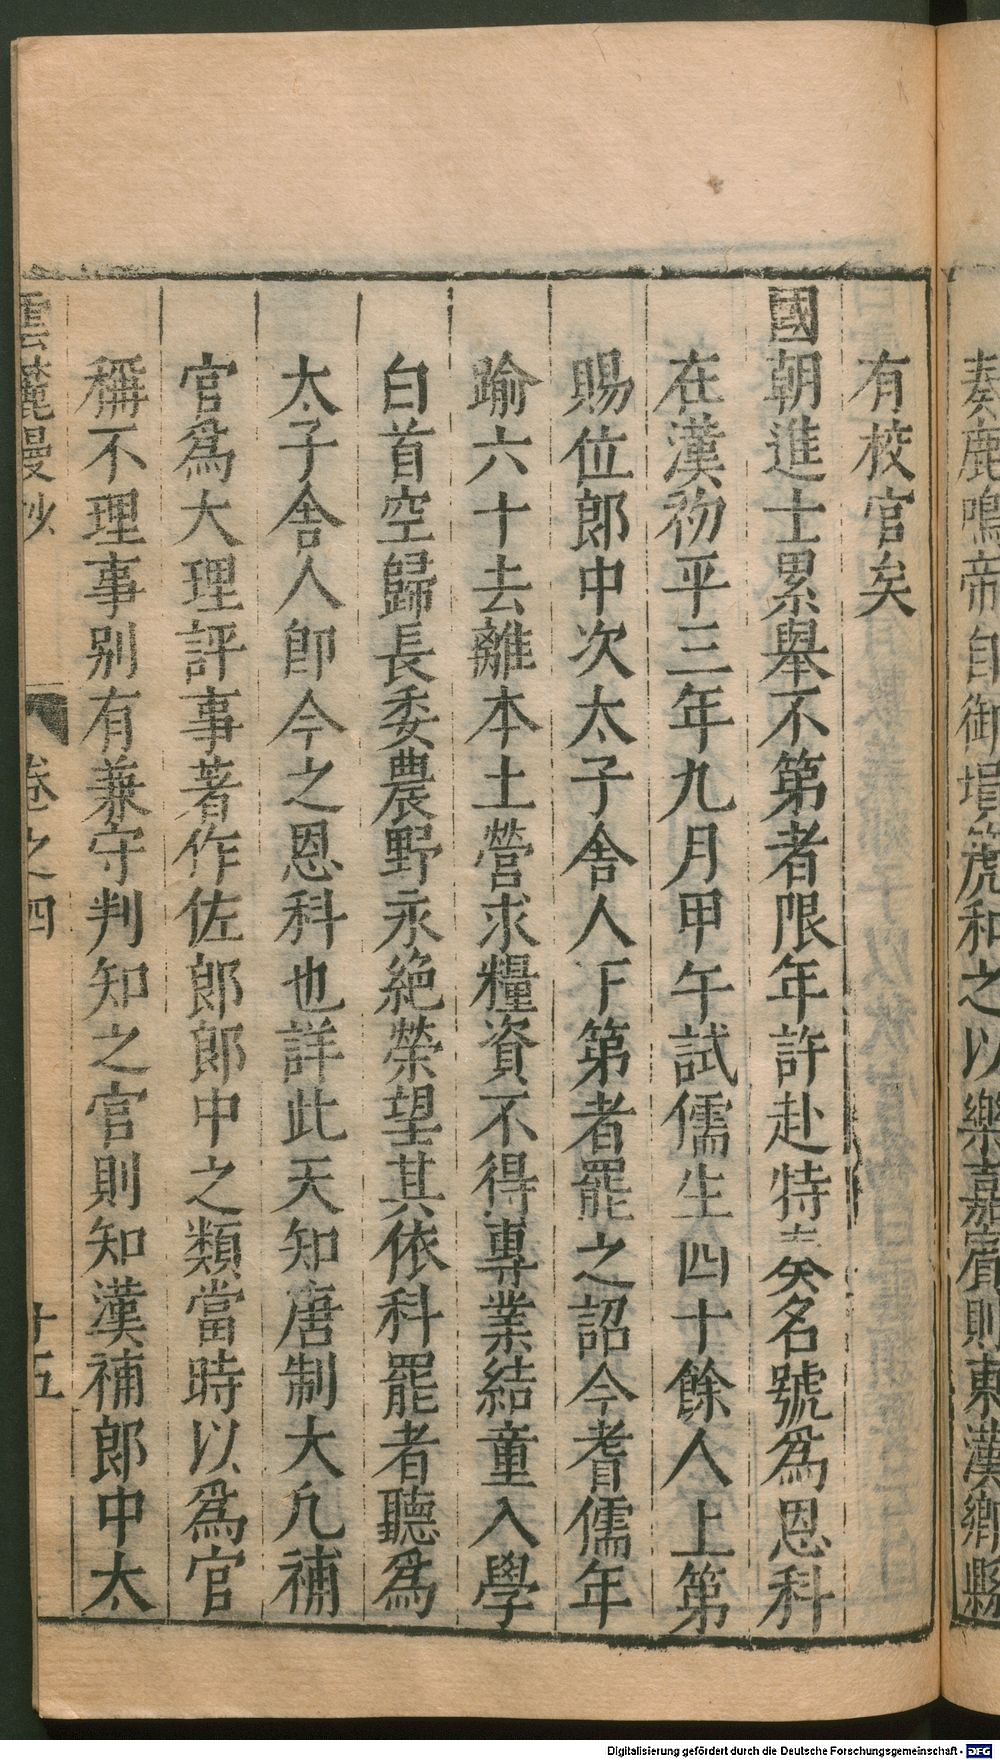 奏鹿鳴帝自御塤箎和之以樂嘉賓則東漢鄉縣
有校官矣
國朝進士累舉不第者限年許赴特奏名號爲恩科
在漢初平三年九月甲午試儒生四十餘人上第
賜位郎中次太子舍人下第者罷之詔今耆儒年
踰六十去離本土營求糧資不得專業結童入學
白首空歸長委農野永絕榮望其依科罷者聽爲
太子舍人卽今之恩科也詳此天知唐制大凡補
官爲大理評事著作佐郎郎中之類當時以爲官
稱不理事别有兼守判知之官則知漢補郎中太
雲麓漫抄 卷之四 十五
Digitalisierung gefördert durch die Deutsche Forschungsgemeinschaft - DFG